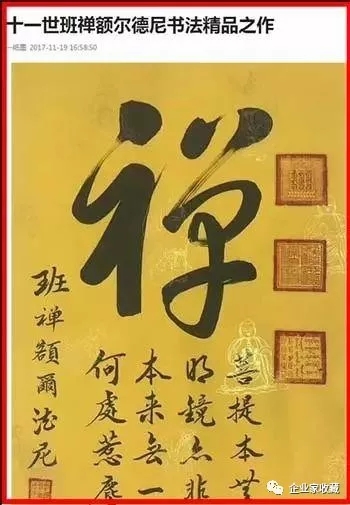 十一世班禅额尔德尼书法精品之作
一纸墨 2017-11-19 16:58:50
禅
菩提本無
明鏡亦非
本来無一
何處惹塵
班禅額爾德尼
企业家收藏